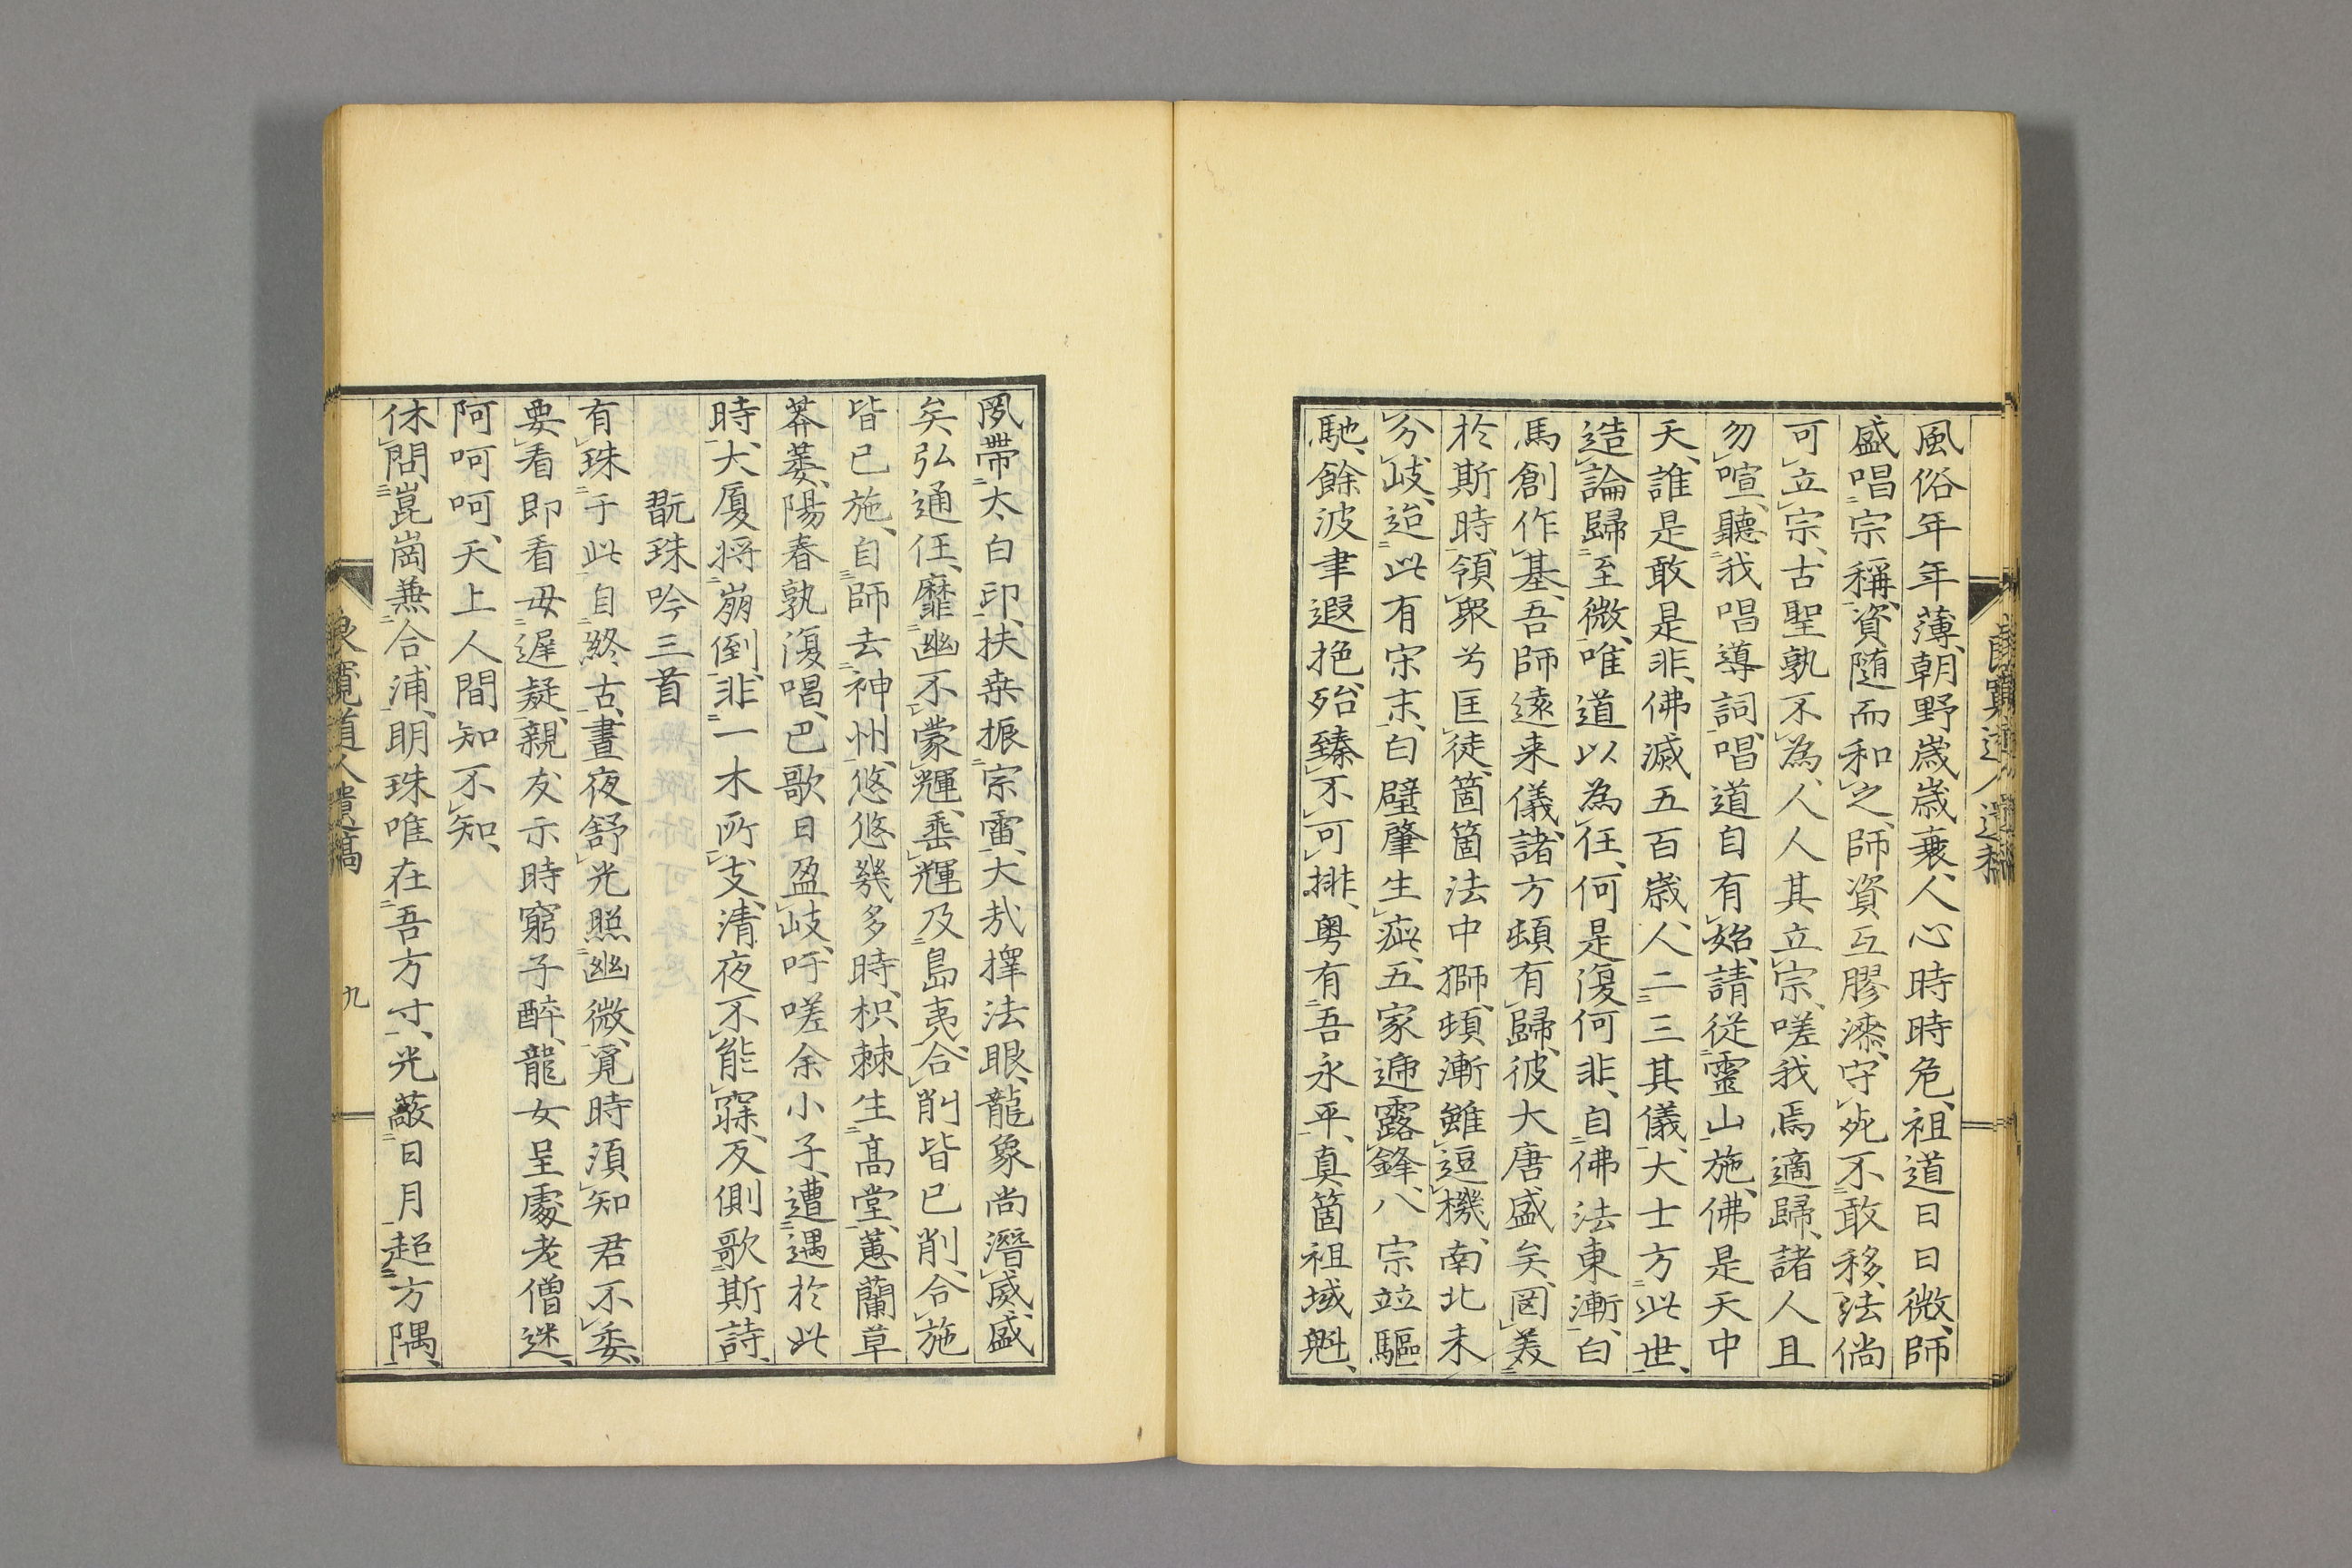 風俗年年薄、朝野歳歳衰、人心時時危、祖道日日微、師
盛唱宗稱、資随而和之、師資互膠漆、守死不敢移、法倘
可立宗、古聖孰不為、人人其立宗、嗟我焉適歸、諸人且
勿喧、聽我唱導詞、唱道自有始、請從靈山施、佛是天中
天、誰是敢是非、佛滅五百歳、人二三其儀、大士方此世、
造論歸至微、唯道以為任、何是復何非、自佛法東漸、白
馬創作基、吾師遠来儀、諸方頓有歸、彼大唐盛矣、罔美
於斯時、領衆兮匡徒、箇箇法中獅、頓漸雖逗機、南北未
分岐、迨此有宋末、白璧肇生疵、五家遞露鋒、八宗竝驅
馳、餘波聿遐挹、殆臻不可排、粤有吾永平、真箇祖域魁、
夙帶太白印、扶桒振宗雷、大哉擇法眼、龍象尚潛威、盛
矣弘通任、靡幽不蒙輝、埀輝及島夷、合削皆已削、合施
皆已施、自師去神州、悠悠幾多時、枳棘生高堂、蕙蘭草
莽萎、陽春孰復唱、巴歌日盈岐、吁嗟余小子、遭遇於此
時、大厦将崩倒、非一木所支、清夜不能寐、反側歌斯詩、
翫珠吟三首
有珠于此自終古、晝夜舒光照幽微、覓時須知君不委、
要看即看毋遅疑、親友示時窮子醉、龍女呈處老僧迷、
阿呵呵、天上人間知不知、
休問崑崗兼合浦、明珠唯在吾方寸、光蔽日月超方隅、
道人遺稿
九